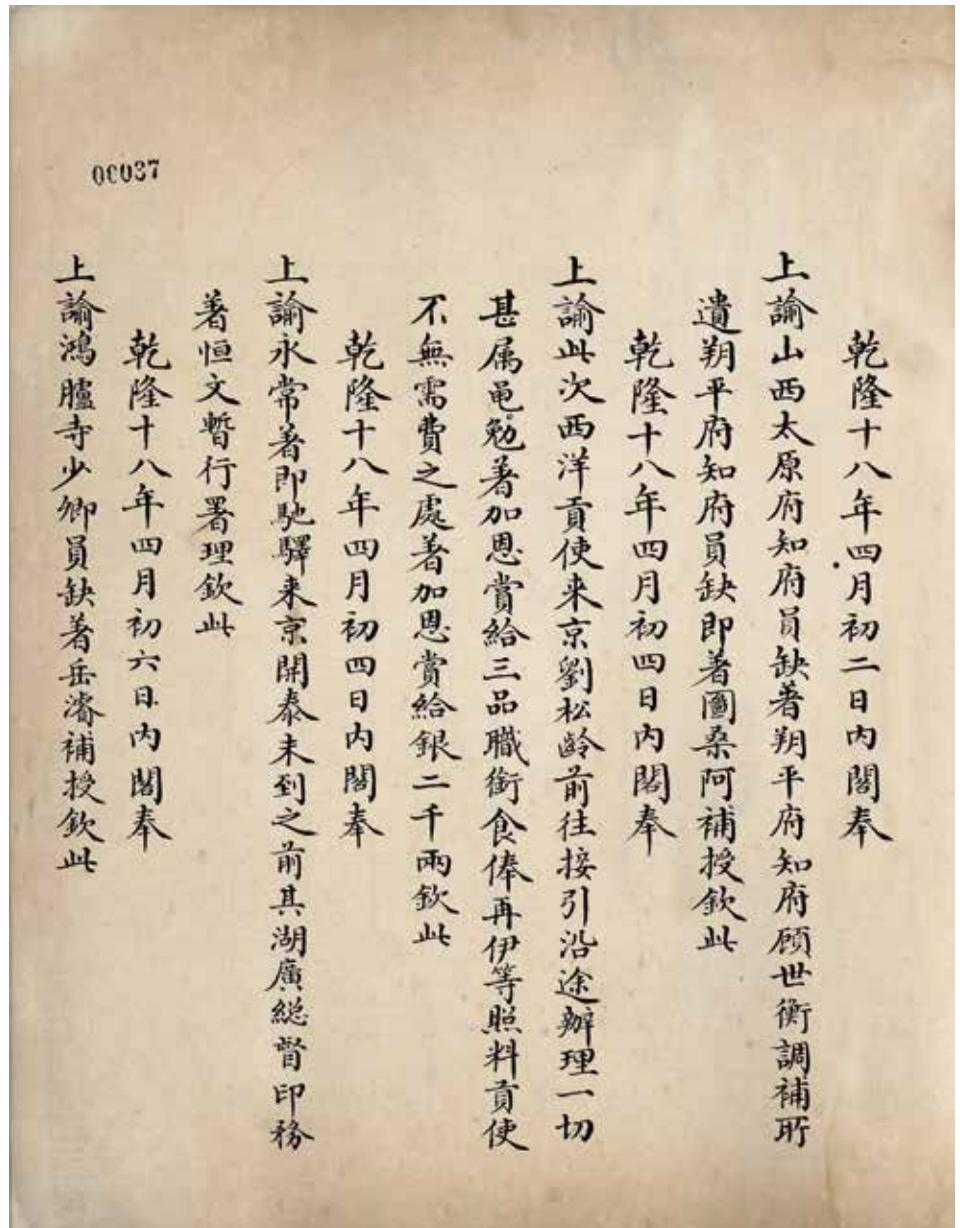 00037
乾隆十八年四月初二日内閣奉
上諭山西太原府知府員缺著朔平府知府顾世衡調補所
遺朔平府知府員缺即著圖桑阿補授欽此
乾隆十八年四月初四日内閣奉
上諭此次西洋貢使来京劉松齡前往接引沿途辦理一切
甚属黾勉著加恩賞給三品職銜食俸再伊等照料貢使
不無需費之處著加恩賞給銀二千兩欽此
乾隆十八年四月初四日内閣奉
上諭永常著即馳驛来京開泰未到之前其湖廣総督印務
著恒文暫行署理欽此
乾隆十八年四月初六日内閣奉
上諭鴻臚寺少卿員缺著岳濬補授欽此